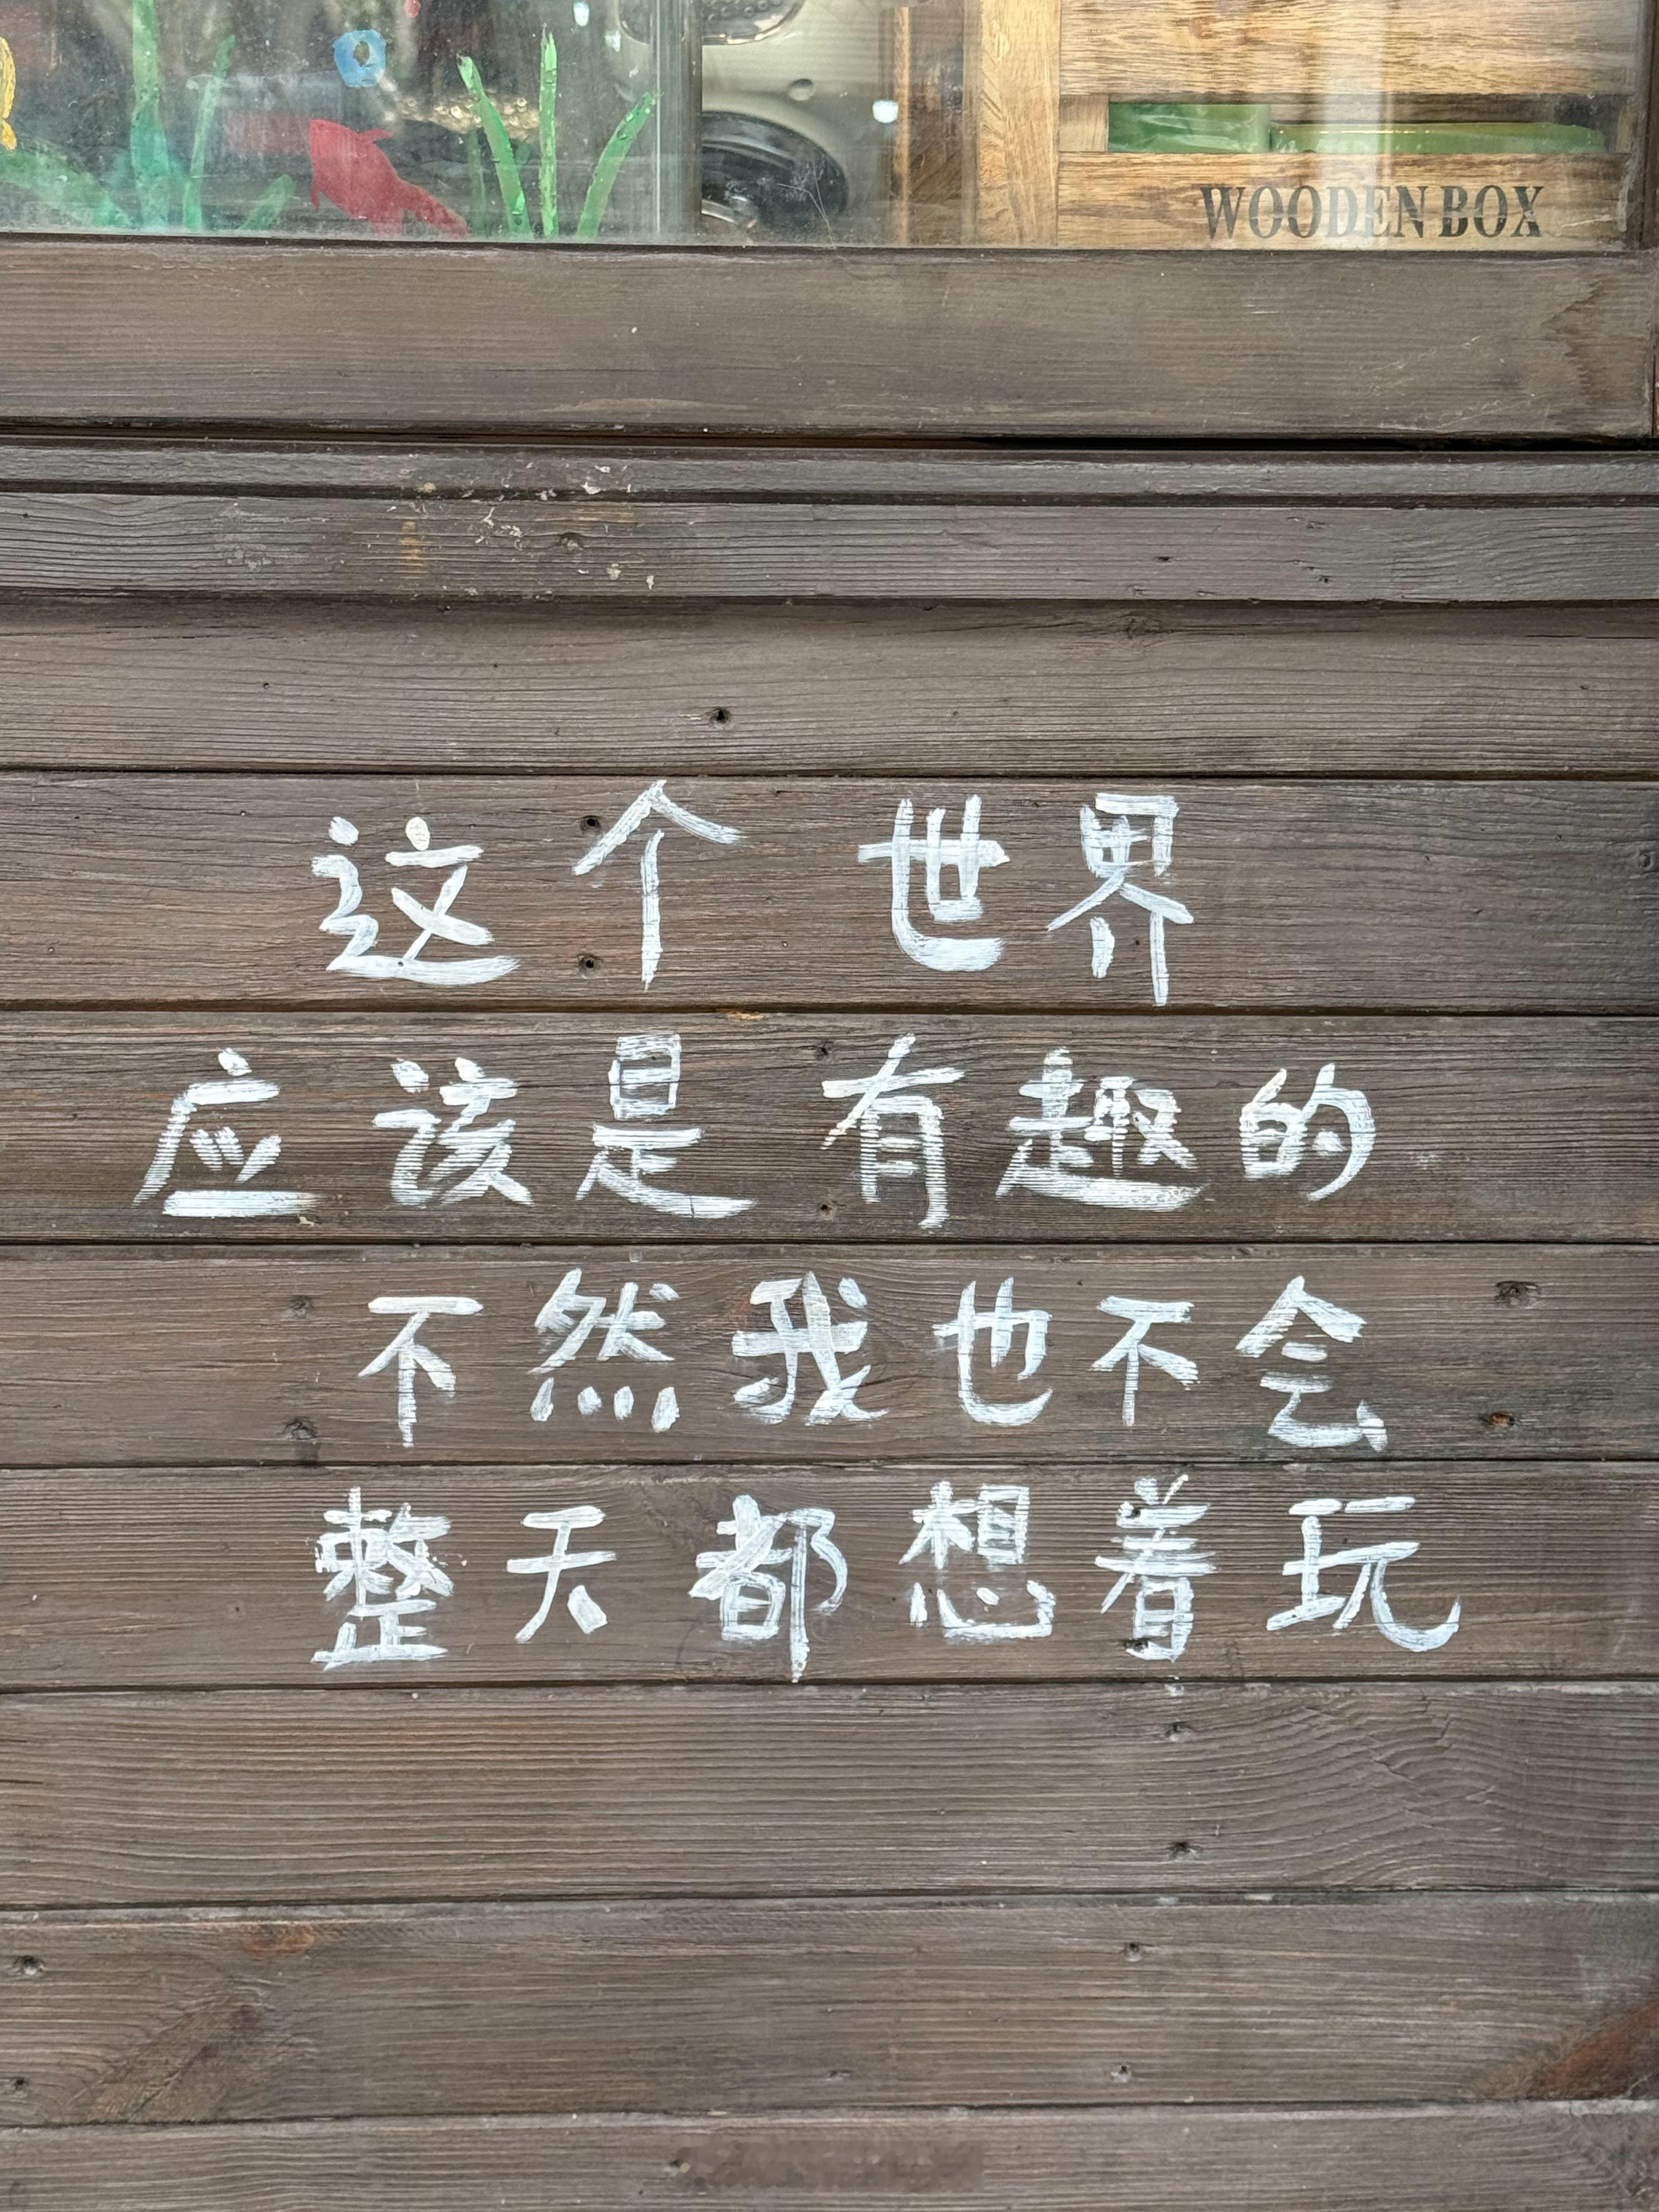 WOODEN BOX
这个世界
应该是有趣的
不然我也不会
整天都想着玩